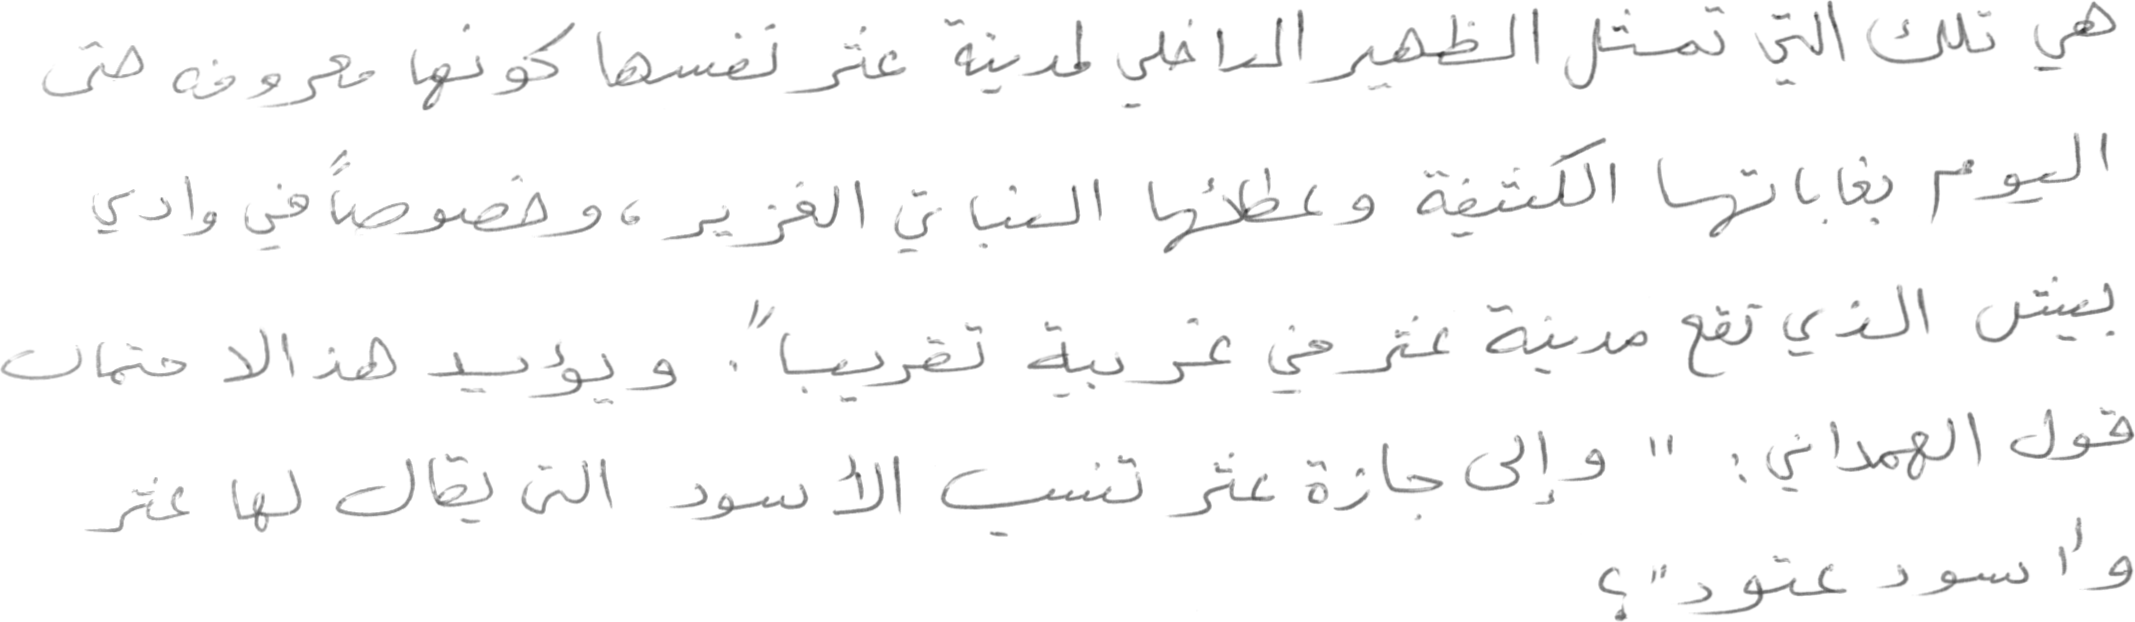 هي تلك التي تمثل الظهير الداخلي لمدينة عثر نفسها كونها معروفه حتى
اليوم بغاباتها الكثيفة وغطائها النباتي الغزير، وخصوصاً في وادي
بيش الذي تقع مدينة عثر في غربية تقريباً. ويؤيد هذا الاحتمال
قول الهمداني: "وإلى جازة عثر تنسب الأسود التي يقال لها عثر
وأسود عتود"؟